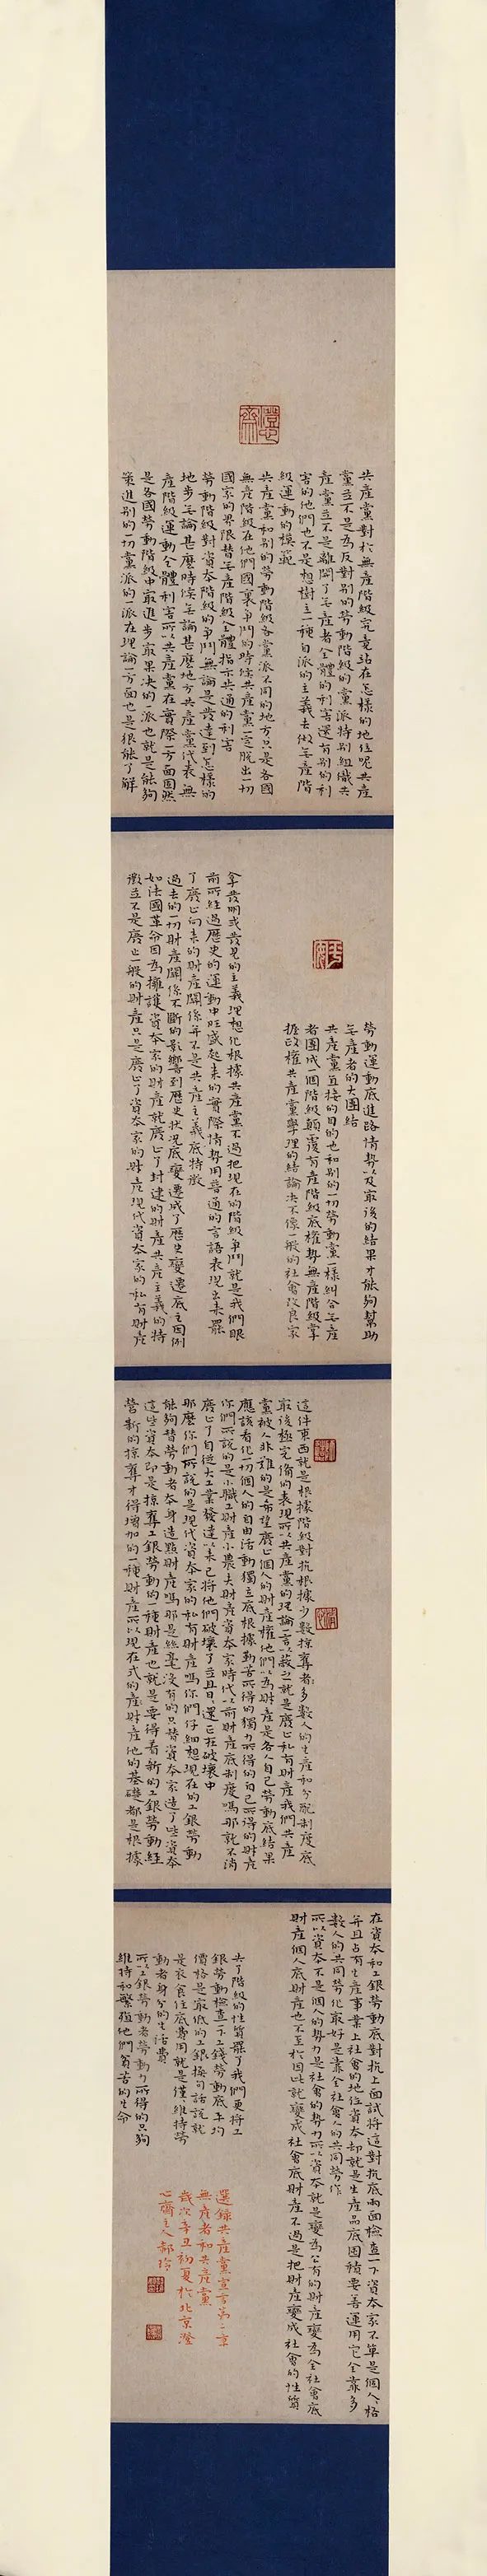 澄心齋
共產黨對於無產階級究竟站在怎樣的地位呢共產
黨並不是為反對別的勞動階級的黨派特別組織共
產黨並不是離開了無產者全體的利害還有別的利
害的他們也不是想樹立一種自派的主義去做無產階
級運動的模範
共產黨和別的勞動階級各黨派不同的地方只是各國
無產階級在他們國裏爭鬥的時候共產黨一定脫出一切
國家的界限替無產階級全體指示共通的利害
勞動階級對資本階級的爭鬥無論是發達到怎樣的
地步無論甚麼時候無論甚麼地方共產黨代表無
產階級運動全體利害所以共產黨在實際一方面固然
是各國勞動階級中最進步最果决的一派也就是能夠
策進別的一切黨派的一派在理論一方面也是很能了解
勞動運動底進路情勢以及最後的結果才能夠幫助
無產者的大團結
共產黨直接的目的也和別的一切勞動黨一樣糾合無產
者團成一個階級顛覆有產階級底權勢無產階級掌
握政權共產黨學理的結論决不像一般的社會改良家
拿發明或發見的主義理想化根據共產黨不過把現在的階級爭鬥就是我們眼
前所經過歷史的運動中旺盛起來的實際情勢用普通的言語表現出來罷
了廢止向來的財產關係並不是共產主義底特徵
過去的一切財產關係不斷的影響到歷史狀况底變遷成了歷史變遷底主因例
如法國革命因為擁護資本家的財產就廢止了封建的財產共產主義的特
徵並不是廢止一般的財產只是廢止了資本家的財產現代資本家的私有財產
這件東西就是根據階級對抗根據少數掠奪者多數人的生產和分配制度底
最後極完備的表現所以共產黨的理論一言以蔽之就是廢止私有財產我們共產
黨被人非難的是希望廢止個人的財產權他們以為財產是各人自己勞動底結果
應該看作一切個人的自由活動獨立底根據勤苦所得的獨力所得的自己所得的財產
你們所說的是小職工財產小農夫財產資本家時代以前財產底制度嗎那就不消
廢止了自從大工業發達以來已將他們破壞了並且日日還正在破壞中
那麼你們所說的是現代資本家的私有財產嗎你們仔細想現在的工銀勞動
能夠替勞動者本身造點財產嗎那是絲毫沒有的只替資本家造了些資本
這些資本即是掠奪工銀勞動的一種財產也就是要得着新的工銀勞動經
營新的掠奪才得增加的一種財產所以現在式的產財產他的基礎都是根據
在資本和工銀勞動底對抗上面試將這對抗底兩面檢查一下資本家不單是個人人格
並且占有生產事業上社會的地位資本却就是生產品底團積要善運用它全靠多
數人的共同勞作最好是靠全社會人的共同勞作
所以資本不是個人的勢力是社會的勢力所以資本就是變為公有的財產變為全社會底
財產個人底財產也不至於因此就變成社會底財產不過是把財產變成社會的性質
失了階級的性質罷了我們更將工
銀勞動檢查一下工錢勞動底平均
價格是最低的工銀換句話說就
是衣食住底費用就是僅僅維持勞
動者身分的生活費
所以工銀勞動者勞動力所得的只夠
維持和繁殖他們窮苦的生命
選錄共產黨宣言第二章
無產者和共產黨
歲次辛丑初夏於北京澄
心齋主人郝玲